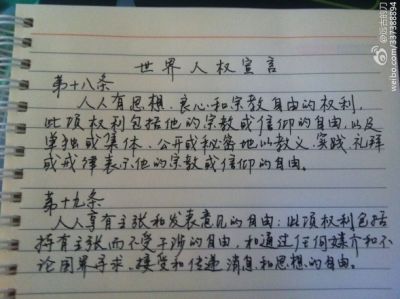 世界人权宣言
第十八条
人人有思想、良心和宗教自由的权利,
此项权利包括他的宗教或信仰的自由,以及
单独或集体、公开或秘密地以教义、实践、礼拜
或戒律表示他的宗教或信仰的自由。
第十九条
人人享有主张和发表意见的自由;此项权利包括
持有主张而不受干涉的自由,和通过任何媒介和不
论国界寻求、接受和传递消息和思想的自由。
@远古的刀
weibo.com/337388894